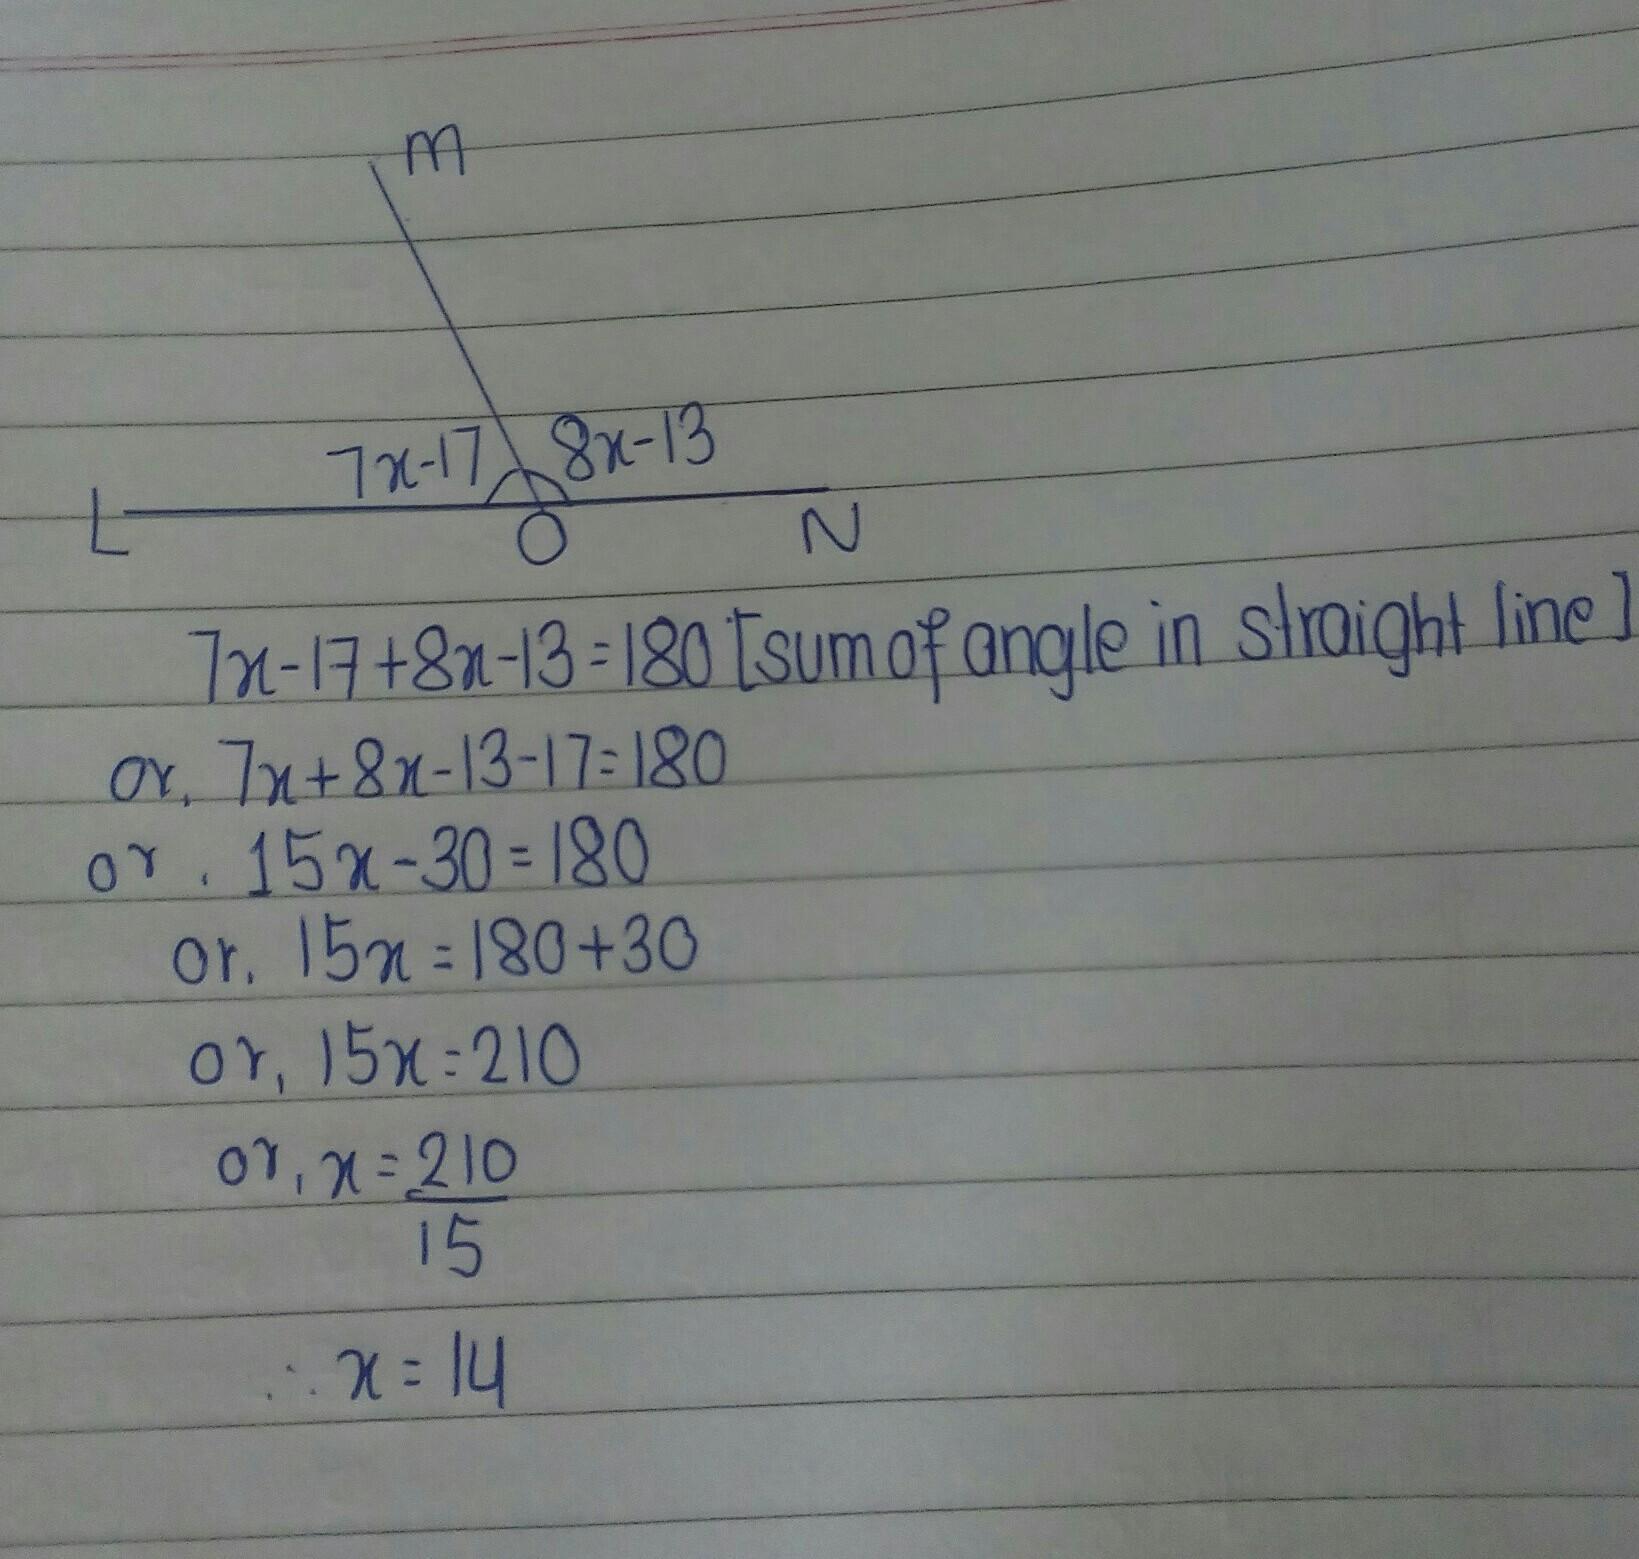 m
7x-17 8x-13
L O N
7x-17+8x-13=180 [sum of angle in straight line]
or, 7x+8x-13-17=180
or, 15x-30=180
or, 15x=180+30
or, 15x=210
or, x=210/15
∴ x=14